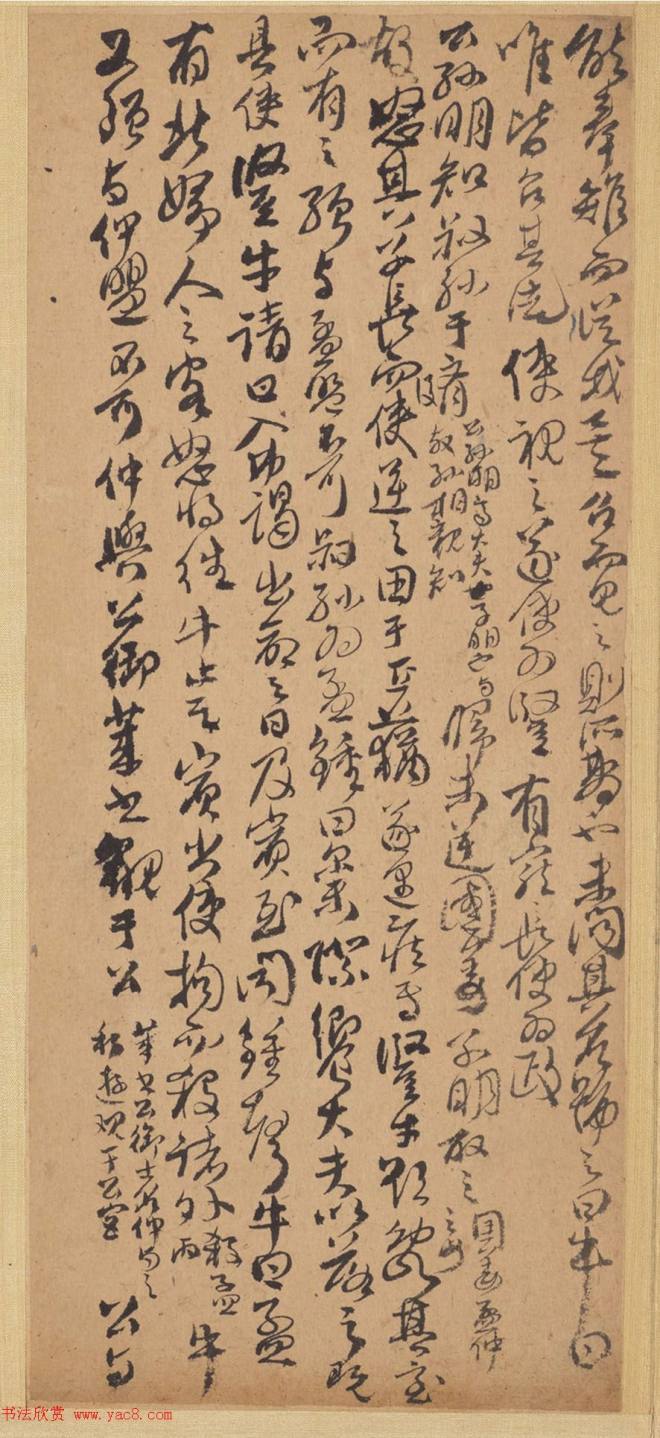 能奉雉而從我矣召而見之則所夢也未問其名號之曰牛曰
唯皆召其徒使視之遂使為豎有寵長使為政
公孫明知叔孫于齊公孫明齊大夫子明也與叔孫相親知歸未逆國姜子明取之國姜孟仲之母
故怒其子長而後使逆之田于丘蕕遂遇疾焉豎牛欲亂其室
而有之強與孟盟不可叔孫為孟鍾曰爾未際饗大夫以落之既
具使豎牛請日入弗謁出命之日及賓至聞鍾聲牛曰孟
有北婦人之客怒將往牛止之賓出使拘而殺諸外殺孟丙牛
又強與仲盟不可仲與公御萊書觀于公萊書公御士名仲與之私遊觀于公宮公與
书法欣赏 www.yac8.com